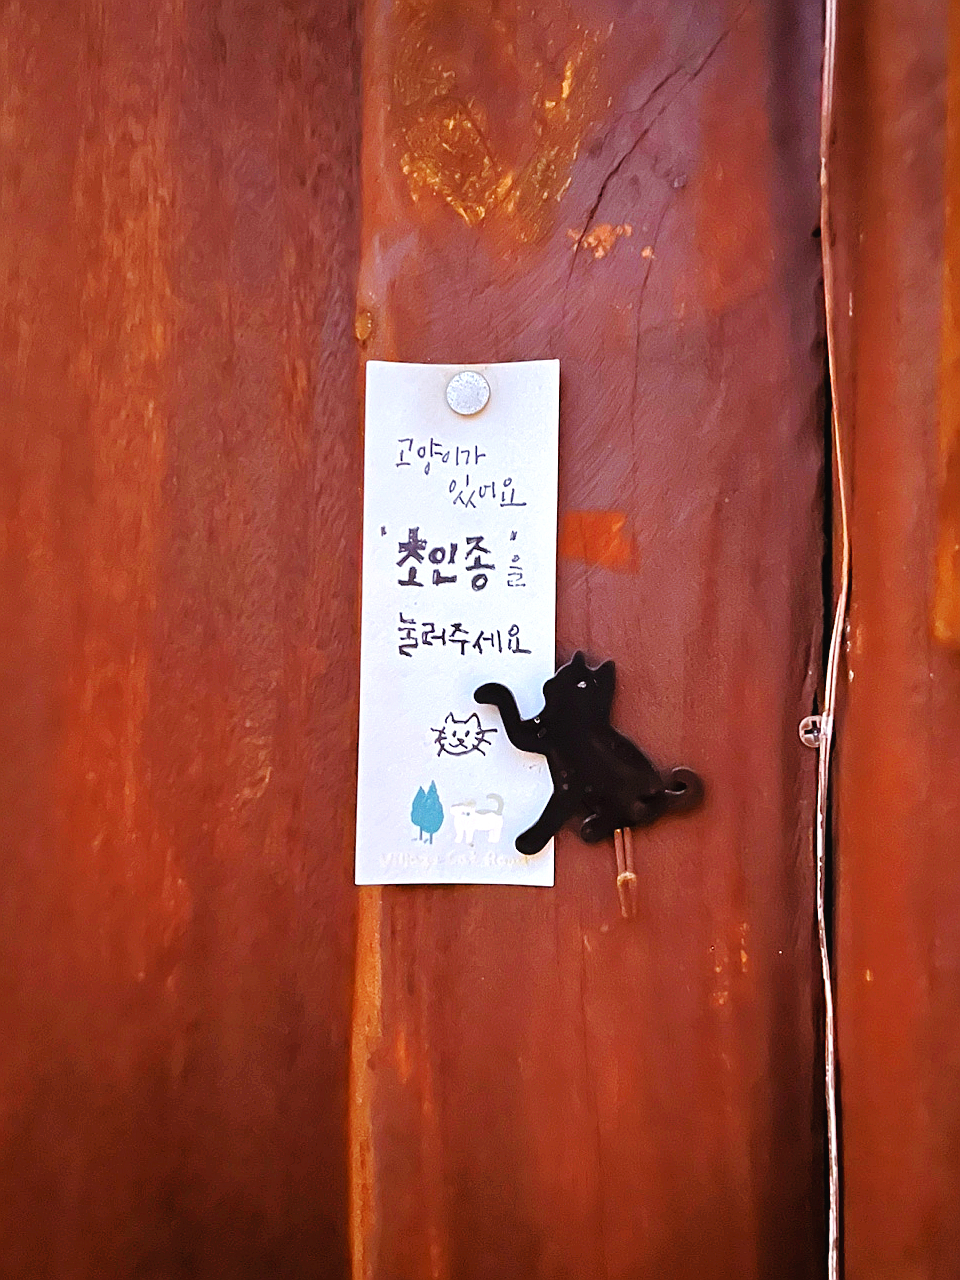 고양이가
있어요
'초인종'을
눌러주세요
Village Cat Road